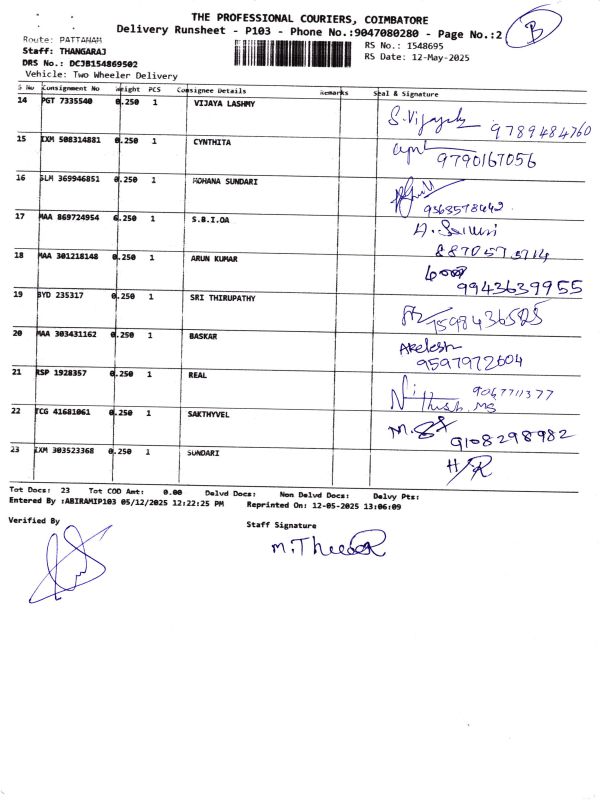 THE PROFESSIONAL COURIERS, COIMBATORE
Delivery Runsheet - P103 - Phone No.:9047080280 - Page No.:2
B
Route: PATTANAM
RS No.: 1548695
Staff: THANGARAJ
RS Date: 12-May-2025
DRS No.: DCJB154869502
Vehicle: Two Wheeler Delivery
S No Consignment No Weight PCS Consignee Details Remarks Seal & Signature
14 PGT 7335540 0.250 1 VIJAYA LASHMY S.Vijayal 9789484760
15 IXM 508314881 0.250 1 CYNTHITA 9790167056
16 SLM 369946851 0.250 1 MOHANA SUNDARI 9363578442
17 MAA 869724954 6.250 1 S.B.I.OA
18 MAA 301218148 0.250 1 ARUN KUMAR 9943639955
19 BYD 235317 0.250 1 SRI THIRUPATHY
20 MAA 303431162 0.250 1 BASKAR Akelesh 9597972604
21 RSP 1928357 0.250 1 REAL
22 TCG 41681061 0.250 1 SAKTHYVEL 9108298982
23 IXM 303523368 0.250 1 SUNDARI
Tot Docs: 23 Tot COD Amt: 0.00 Delvd Docs: Non Delvd Docs: Delvy Pts:
Entered By :ABIRAMIP103 05/12/2025 12:22:25 PM Reprinted On: 12-05-2025 13:06:09
Verified By Staff Signature